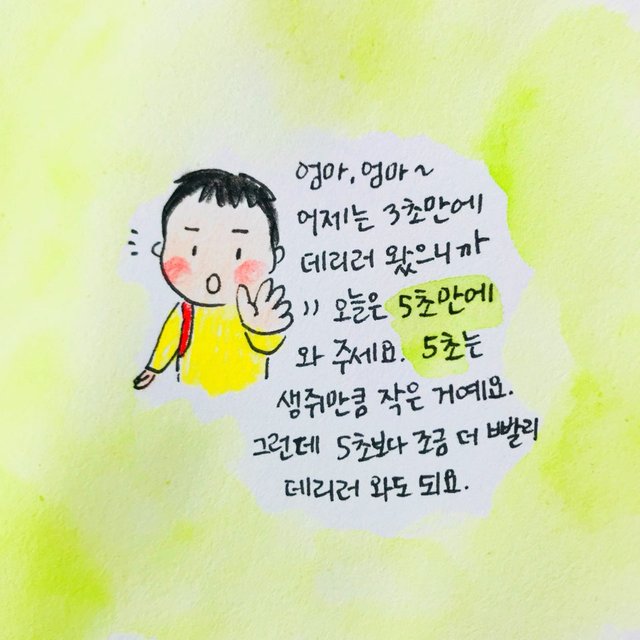 엄마, 엄마~
어제는 3초만에
데리러 왔으니까
오늘은 5초만에
와 주세요. 5초는
생쥐만큼 작은 거예요.
그런데 5초보다 조금 더 빨리
데리러 와도 되요.